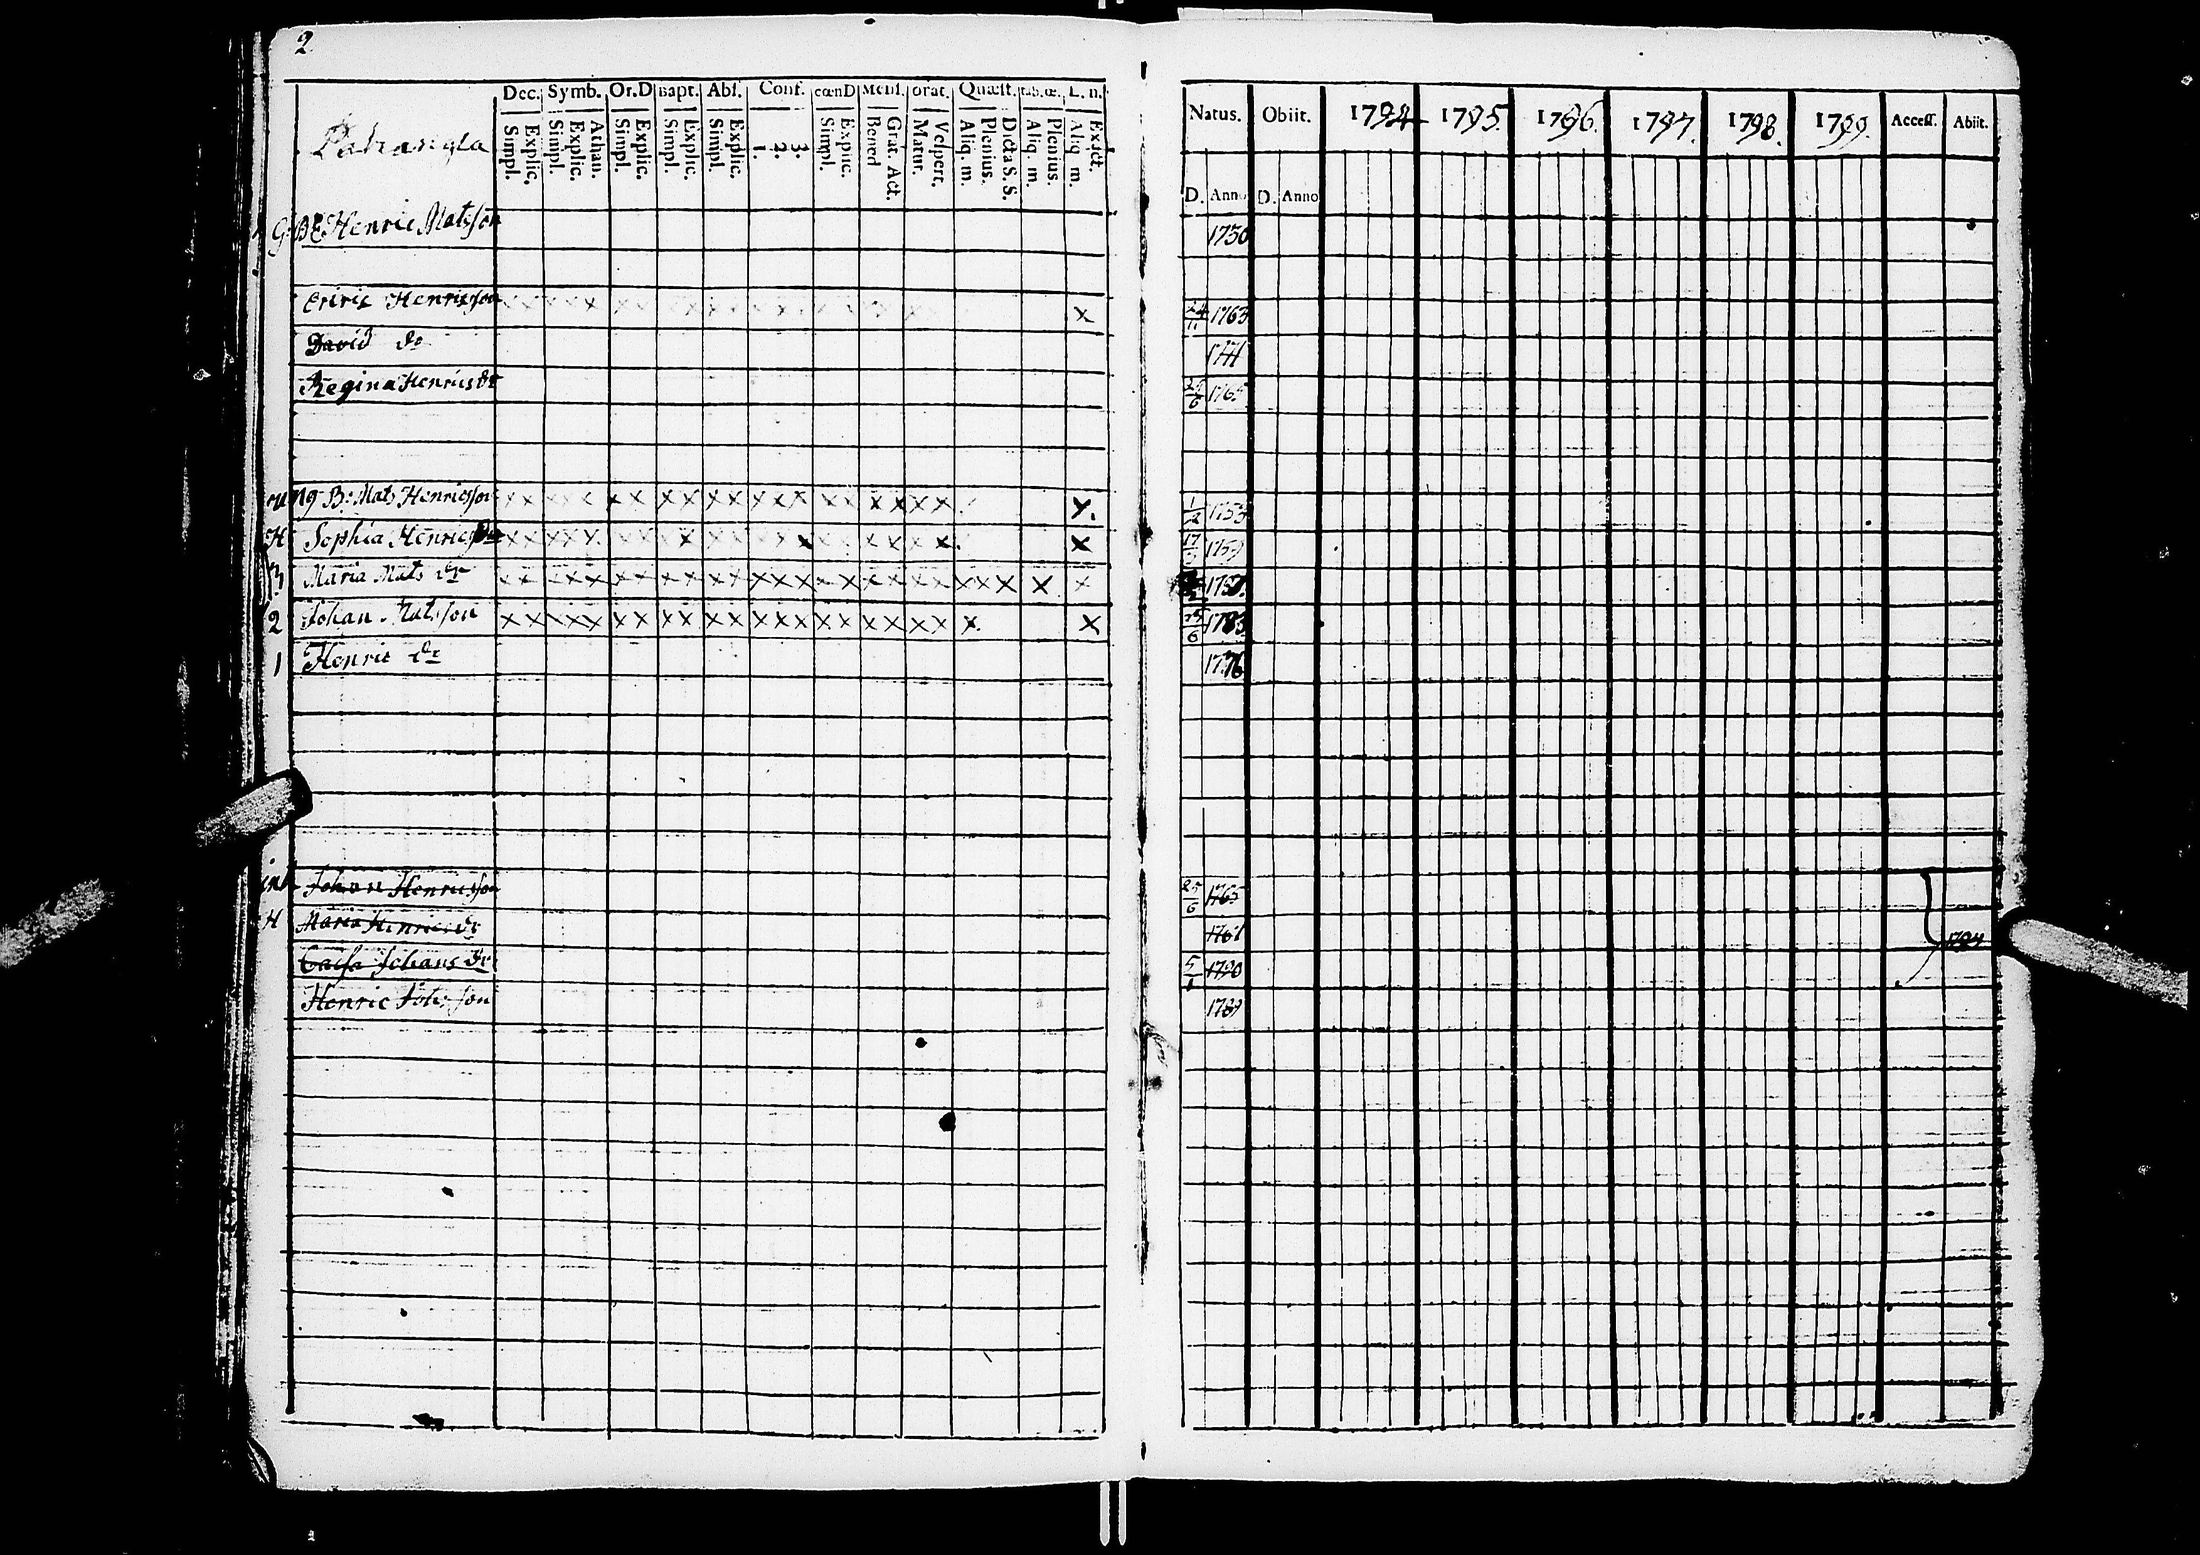 2
Dec. Symb. Or.D Bapt. Abs. Conf. cœnD Mens. orat. Quæst. tab.œ. L.n.
Simpl. Explic. Simpl. Explic. Athan. Simpl. Explic. Simpl. Explic. Simpl. Explic. 1. 2. 3. Simpl. Explic. Bened Grat. Act. Matur. Vespert. Aliq. m. Plenius. Dicta S. S. Aliq. m. Plenius. Aliq. m. Exact.
Natus. Obiit. 1794 1795. 1796. 1797. 1798. 1799. Access. Abiit.
D. Anno D. Anno
Henric Matsson 1730
Henricsson x 24/11 1763
David do
Regina Henricsdr 1765
B: Mats Henricsson x x x x x x x x x x x x x x x x x x x. 1753
H Sophia x x x x x x x x x x x x x x x x x x x 17
Maria Mats dr x x x x x x x x x x x x x x x x x x x x x x x
2 Johan Matsson x x x x x x x x x x x x x x x x x x x x x 25/6 1783
1 Henric do 1776
Johan Henricsson 25/6 1765
H Maria Henricsdr 1761
Caisa Johans dr 5/1 1790 1794
Henric Johsson 1789